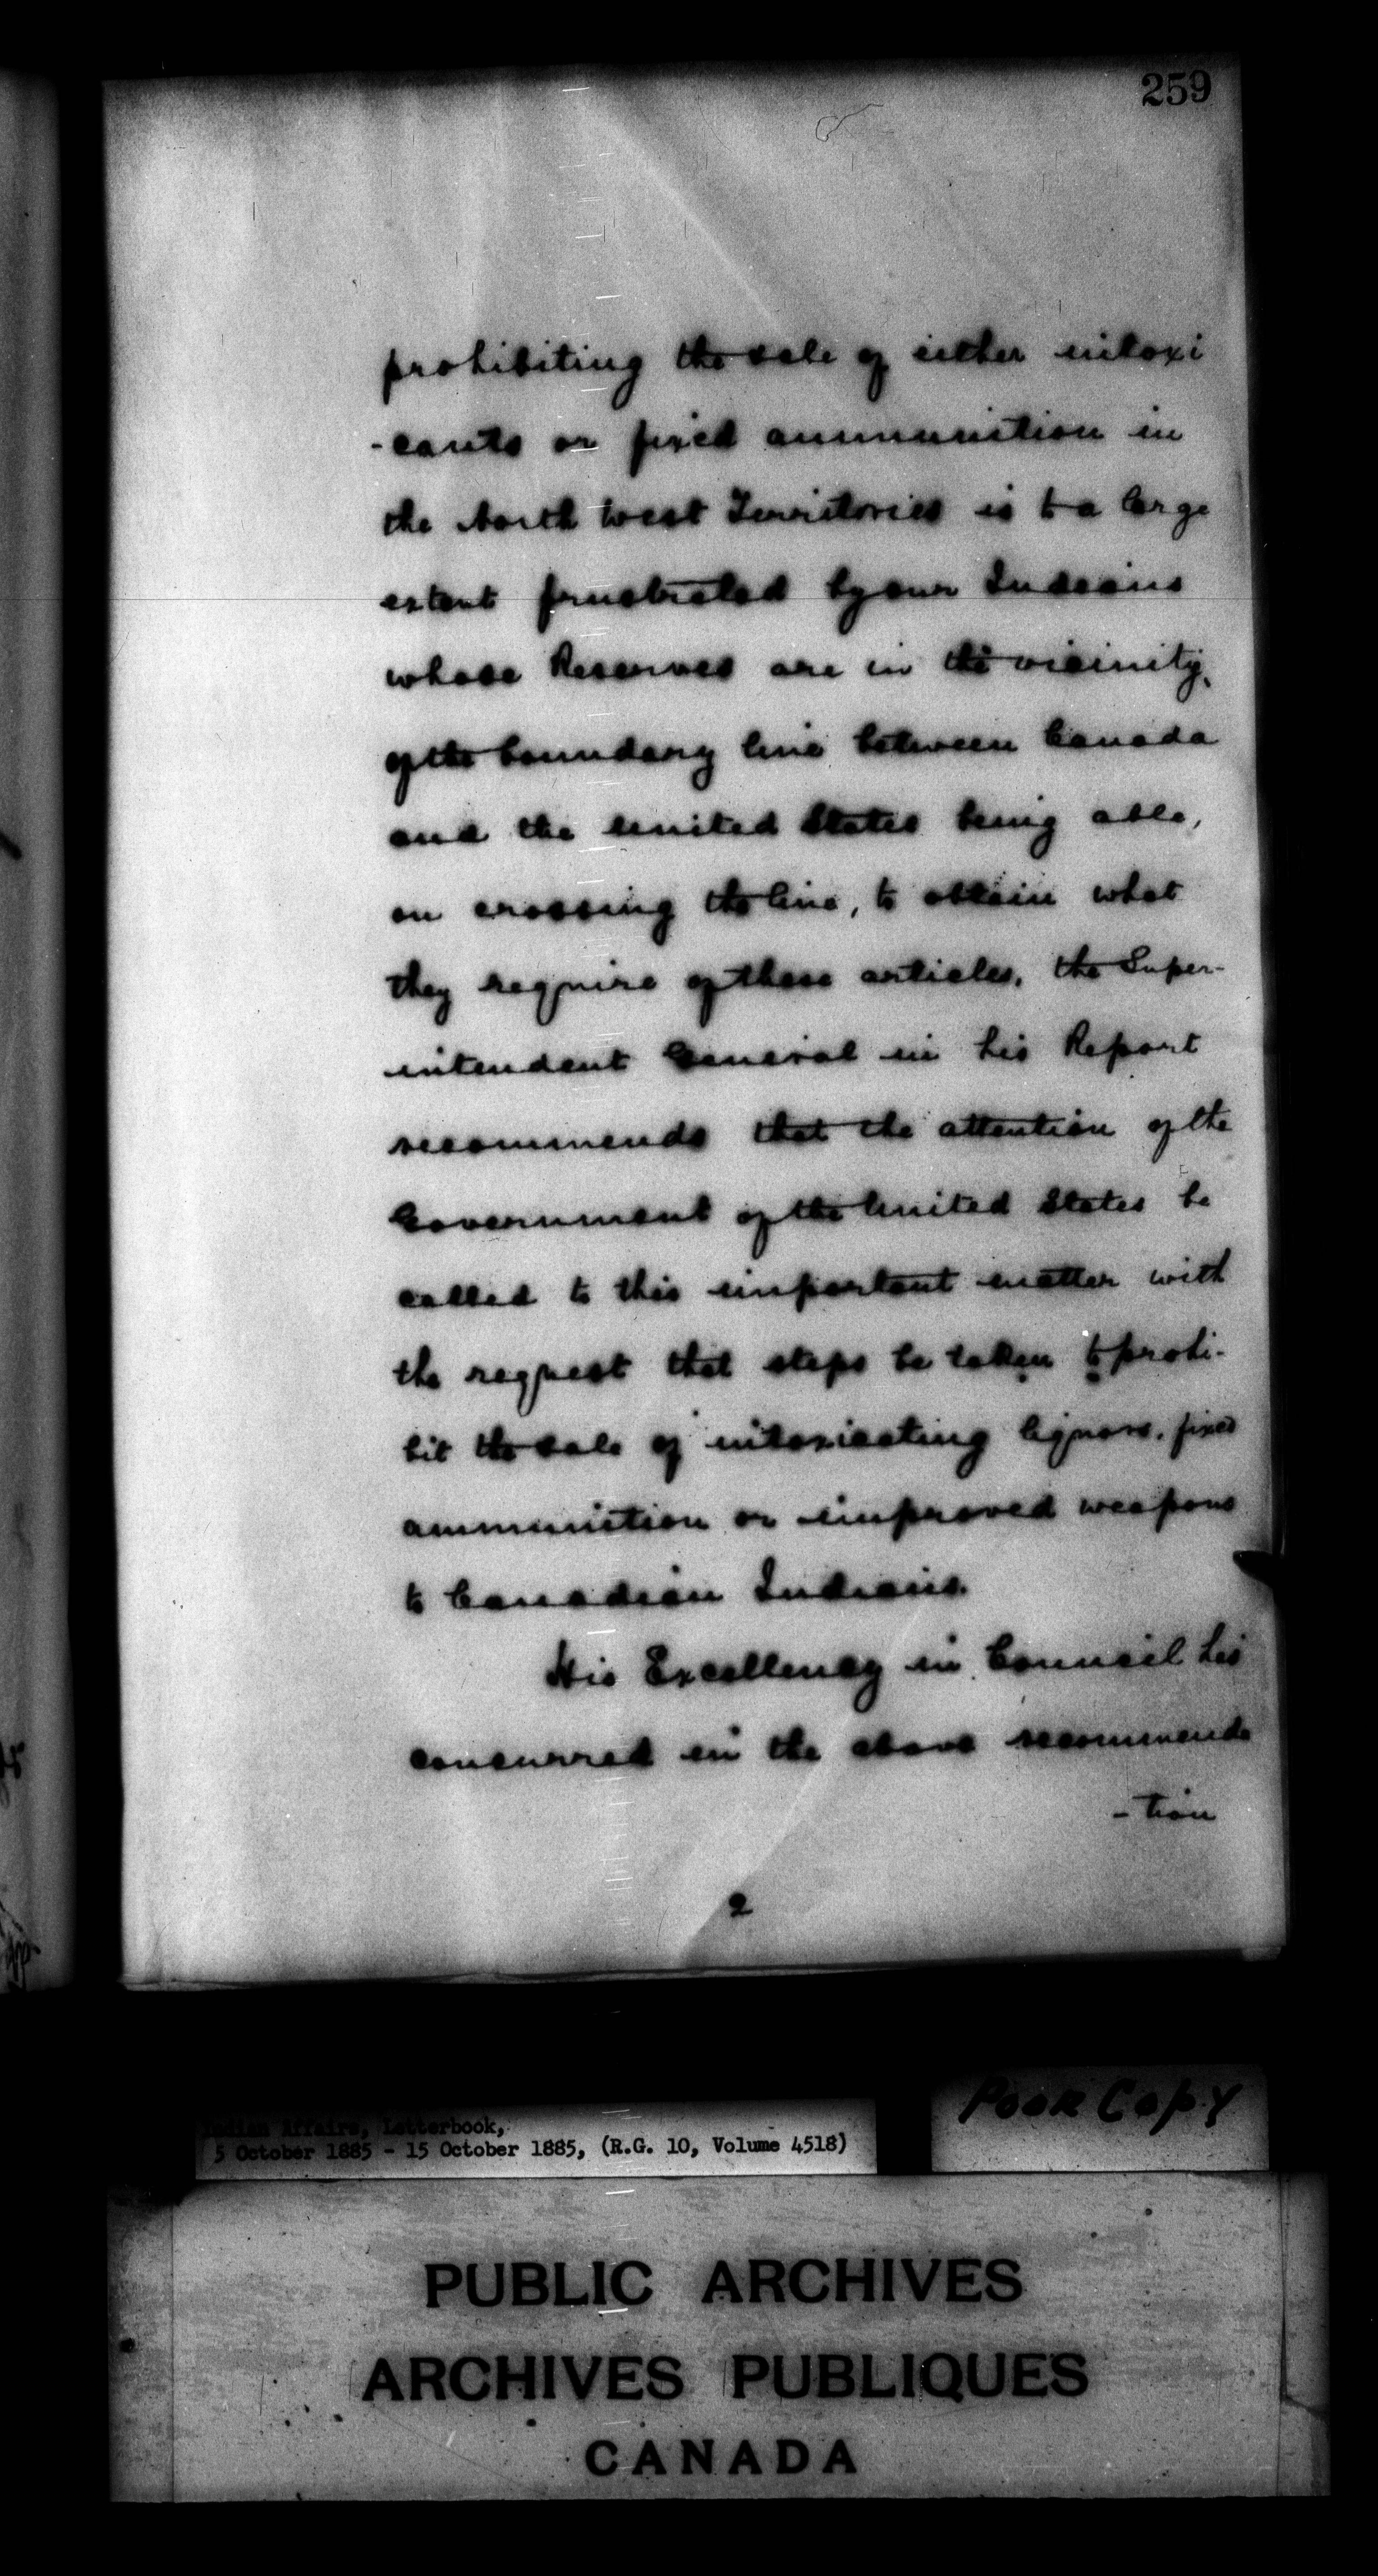 259
prohibiting the sale of either intoxi
-cants or fixed ammunition in
the North West Territories is to a large
extent frustrated by our Indians
whose Reserves are in the vicinity,
of the boundary line between Canada
and the United States being able,
on crossing the line, to obtain what
they require of these articles, the Super-
intendent General in his Report
recommends that the attention of the
Government of the United States be
called to this important matter with
the request that steps be taken to prohi-
bit the sale of intoxicating liquors, fixed
ammunition or improved weapons
to Canadian Indians.
His Excellency in Council has
concurred in the above recommenda
-tion
2
Poor Copy
Indian Affairs, Letterbook,
5 October 1885 - 15 October 1885, (R.G. 10, Volume 4518)
PUBLIC ARCHIVES
ARCHIVES PUBLIQUES
CANADA